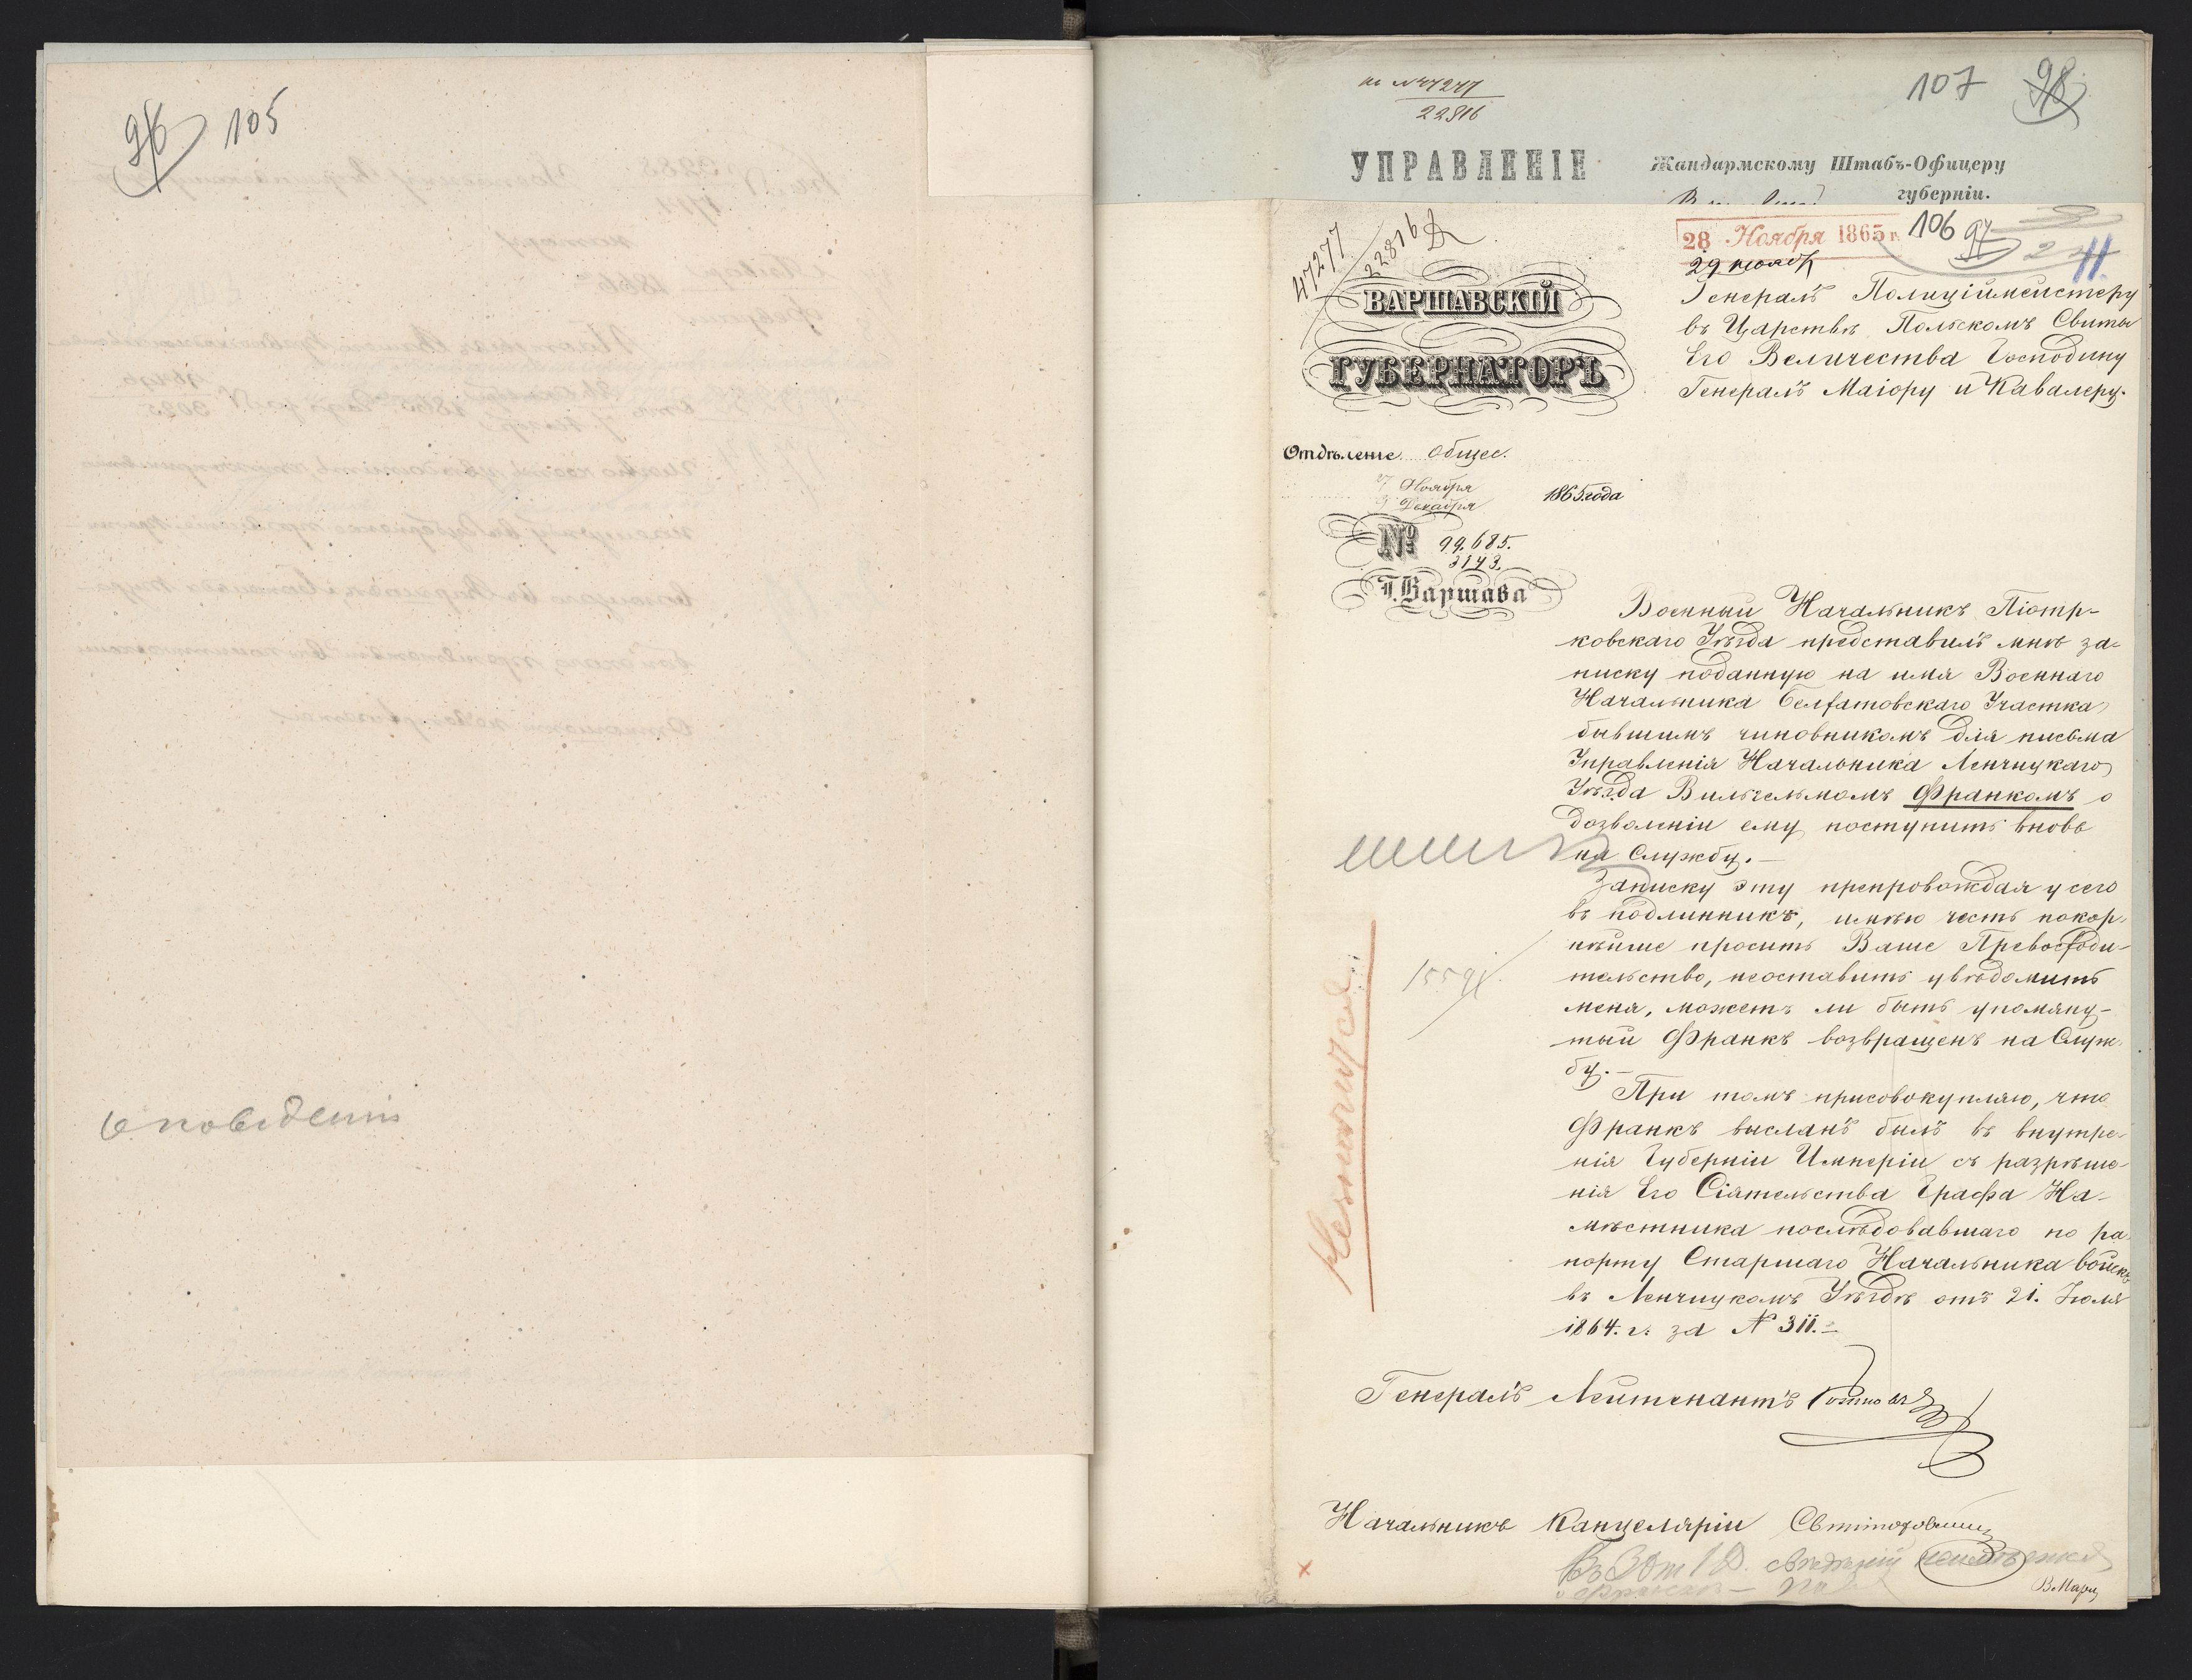 96 105
о поведеніи
к № 47277
22816
107 98
УПРАВЛЕНІЕ
Жандармскому Штабъ-Офицеру
губерніи.
47277
22816
28 Ноября 1865 г.
106 97
29 ноябр
ВАРШАВСКІЙ
ГУБЕРНАТОРЪ
Генералъ Полиціймейстеру
въ Царствѣ Польскомъ Свиты
Его Величества Господину
Генералъ Маіору и Кавалеру.
Отдѣленіе Общее.
27 Ноября
9 Декабря
1865 года
№ 99.685.
3143.
Г. Варшава
Военный Начальникъ Піотр-
ковскаго Уѣзда представилъ мнѣ за-
писку поданную на имя Военнаго
Начальника Белхатовскаго Участка
бывшимъ чиновникомъ для письма
Управленія Начальника Ленчицкаго
Уѣзда Вильгельмомъ Франкомъ о
дозволеніи ему поступить вновь
на Службу.—
Записку эту препровождая у сего
въ подлинникѣ, имѣю честь покор-
нѣйше просить Ваше Превосходи-
тельство, неоставить увѣдомить
меня, можетъ ли быть упомяну-
тый Франкъ возвращенъ на Служ-
бу.—
При томъ присовокупляю, что
Франкъ высланъ былъ въ внутре-
нія Губерніи Имперіи съ разрѣше-
нія Его Сіятельства Графа На-
мѣстника послѣдовавшаго по ра-
порту Старшаго Начальника войскъ
въ Ленчицкомъ Уѣздѣ отъ 21. Іюля
1864. г. за № 311.—
Генералъ Лейтенантъ
Начальникъ Канцеляріи